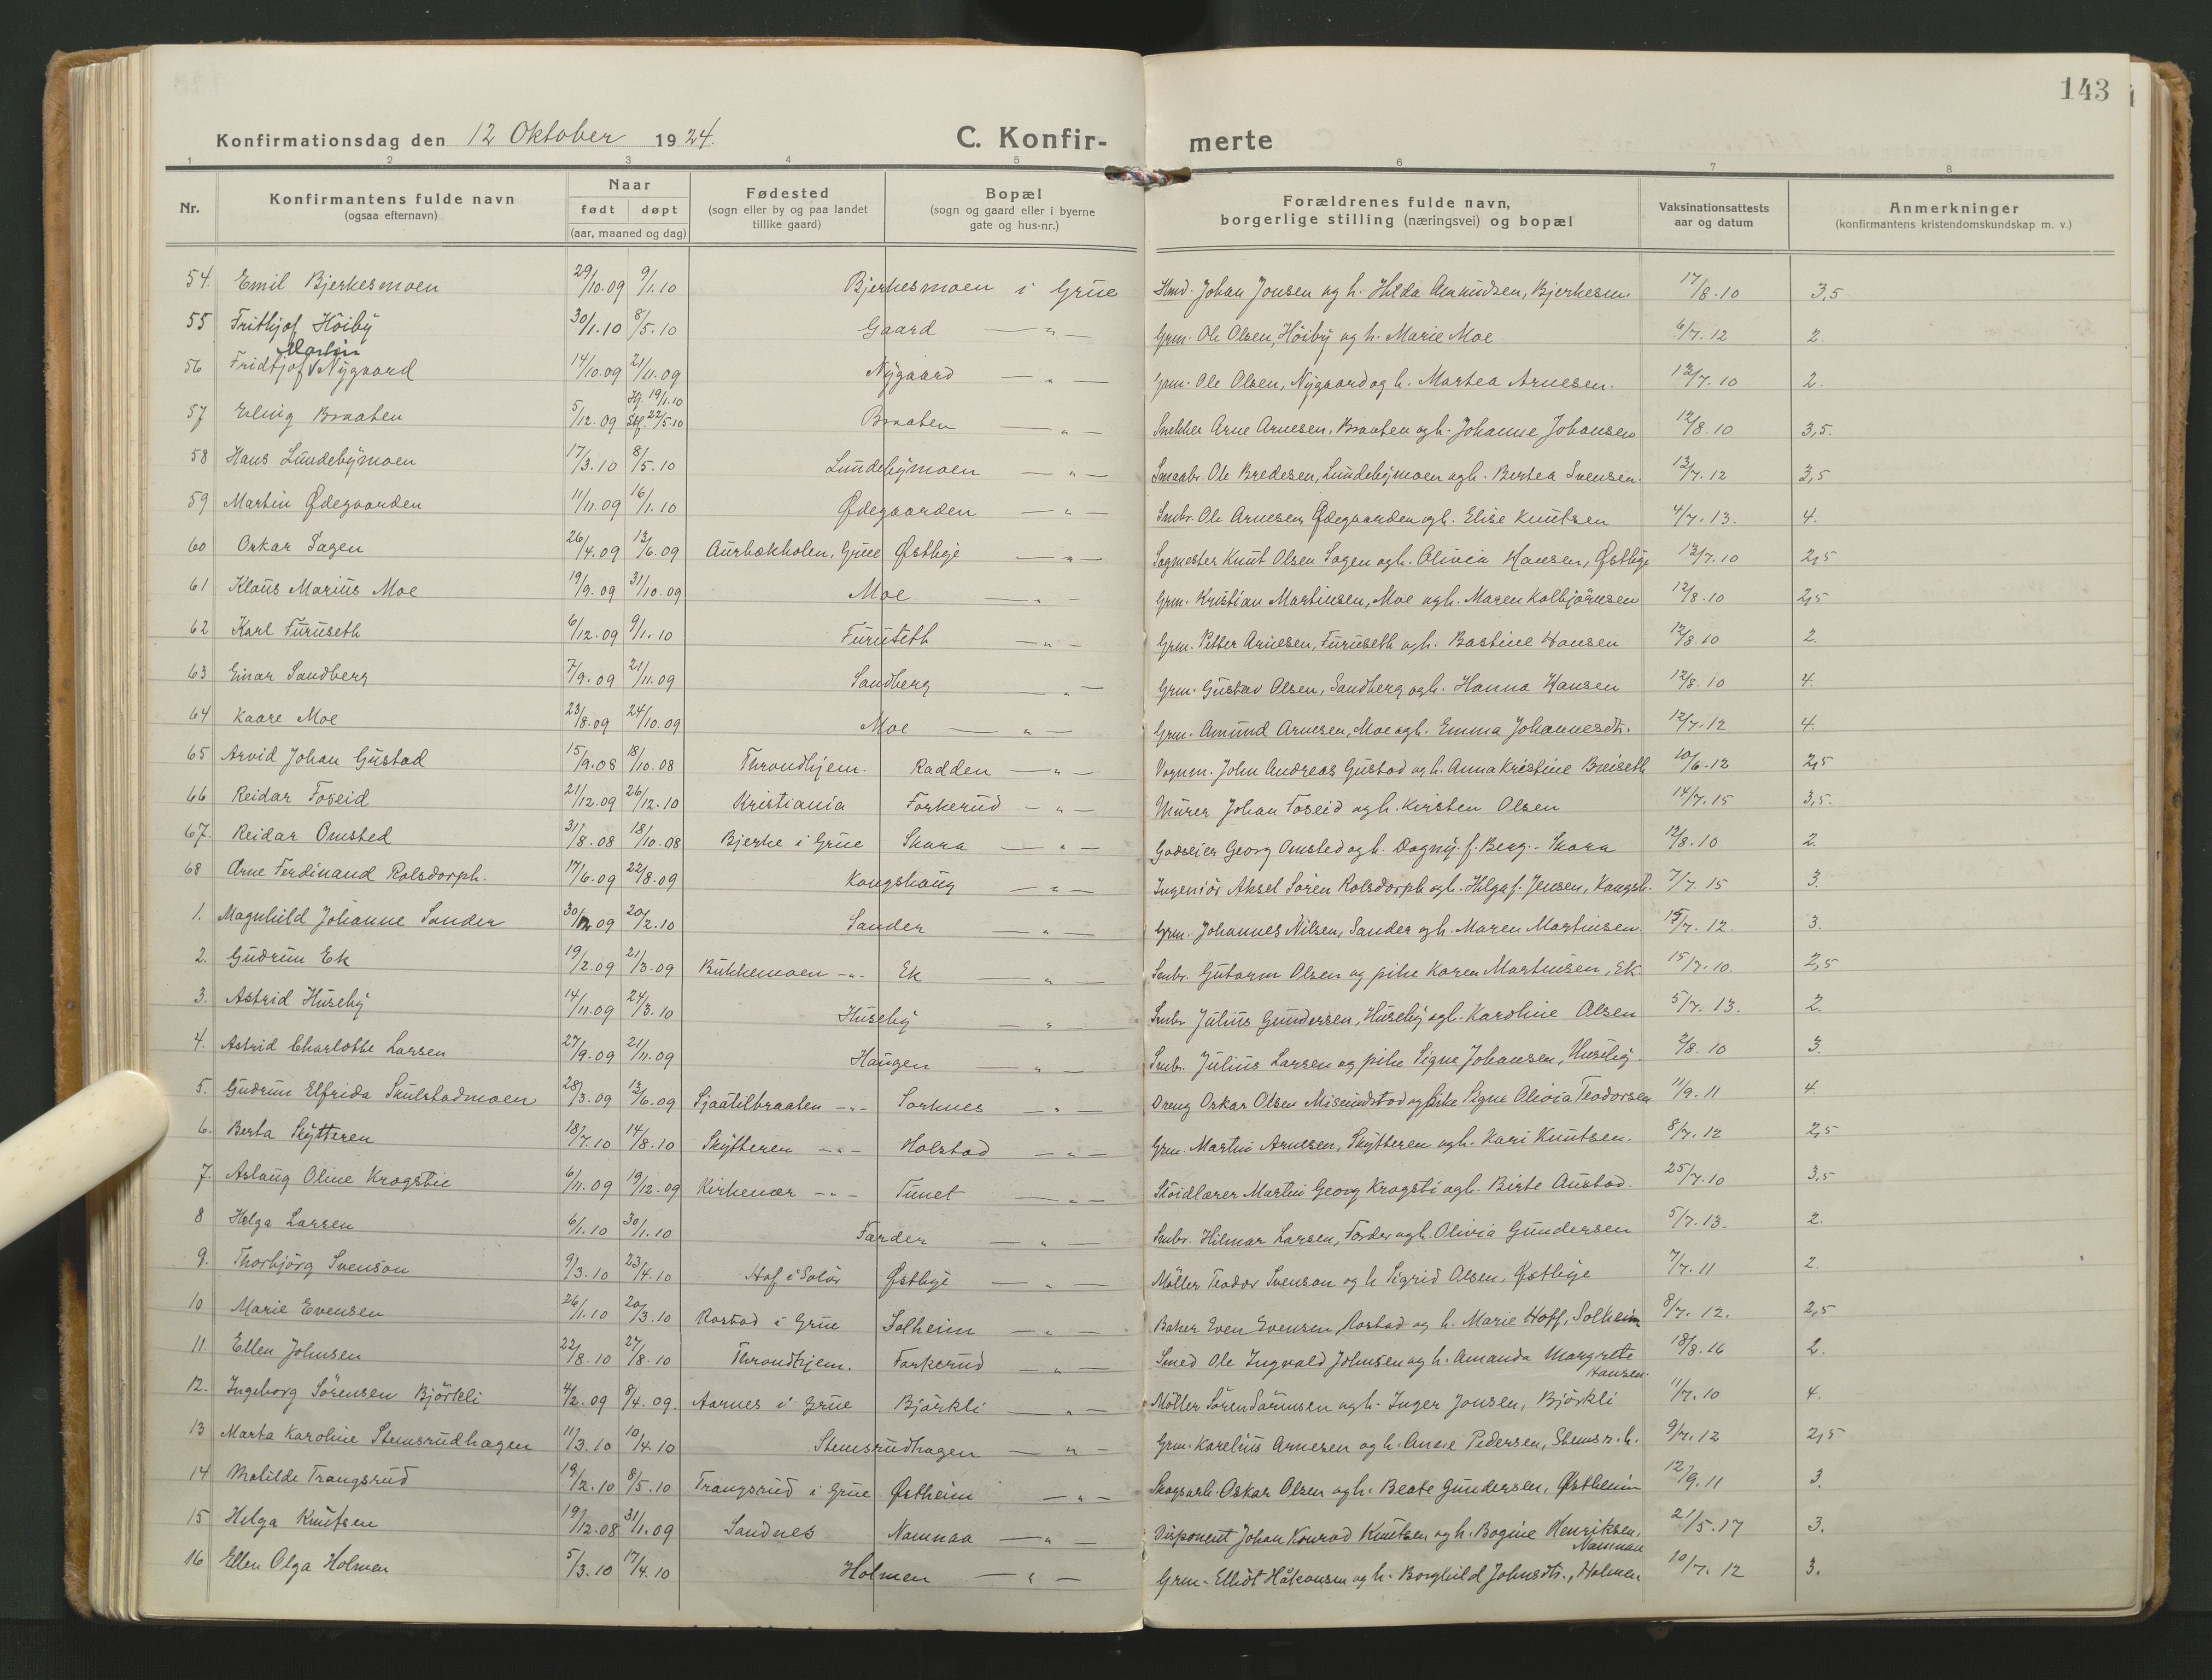 143
Konfirmationsdag den 12 Oktober 1924.
C. Konfir- merte
1 2 3 4 5 6 7 8
Nr. Konfirmantens fulde navn (ogsaa efternavn) Naar født døpt (aar, maaned og dag) Fødested (sogn eller by og paa landet tillike gaard) Bopæl (sogn og gaard eller i byerne gate og hus-nr.) Forældrenes fulde navn, borgerlige stilling (næringsvei) og bopæl Vaksinationsattests aar og datum Anmerkninger (konfirmantens kristendomskundskap m. v.)
54. Emil Bjerkesmoen 29/10.09 9/1.10 Bjerkesmoen i Grue Hmd. Johan Jonsen og h. Hilda Amundsen, Bjerkesm. 17/8.10 3,5
55 Frithjof Höiby 30/1.10 8/5.10 Gaard — " — Grm. Ole Olsen, Höiby og h. Marie Moe. 6/7.12 2.
56 Fridtjof Martin Nygaard 14/10.09 21/11.09 Nygaard — " — Grm. Ole Olsen, Nygaard og h. Martea Arnesen. 12/7.10 2.
57 Erling Braaten 5/12.09 Hj. 19/1.10 Stf. 22/5.10 Braaten — " — Snekker Arne Arnesen, Braaten og h. Johanne Johansen 12/8.10 3,5.
58 Hans Lundebymoen 17/3.10 8/5.10 Lundebymoen — " — Smaabr. Ole Bredesen, Lundebymoen og h. Bertea Svensen. 12/7.12 3,5
59 Martin Ødegaarden 11/11.09 16/1.10 Ødegaarden — " — Smbr. Ole Arnesen Ødegaarden og h. Elise Knutsen 4/7.13. 4.
60 Oskar Sagen 26/4.09 13/6.09 Aurbækholen, Grue Østbye — " — Sagmester Knut Olsen Sagen og h. Olivia Hansen, Østbye 13/7.10 2,5
61 Klaus Marius Moe 19/9.09 31/10.09 Moe — " — Grm. Kristian Martinsen, Moe og h. Maren Kolbjörnsen 12/8.10 2,5
62 Karl Furuseth 6/12.09 9/1.10 Furuteth — " — Grm. Petter Arnesen, Furuseth og h. Bastine Hansen 12/8.10 2.
63 Einar Sandberg 7/9.09 21/11.09 Sandberg — " — Grm. Gustav Olsen, Sandberg og h. Hanna Hansen 12/8.10 4.
64 Kaare Moe 23/8.09 24/10.09 Moe — " — Grm. Amund Arnesen, Moe og h. Emma Johannesdtr. 12/7.12 4.
65 Arvid Johan Gustad 15/9.08 18/10.08 Throndhjem. Radden — " — Vognm. John Andreas Gustad og h. Anna Kristine Breiseth 10/6.12 2,5
66 Reidar Foseid 21/12.09 26/12.10 Kristiania Forkerud — " — Murer Johan Foseid og h. Kirsten Olsen 14/7.15 3,5.
67. Reidar Omsted 31/8.08 18/10.08 Bjerke i Grue Skara — " — Godseier Georg Omsted og h. Dagny f. Berg.- Skara 12/8.10 2.
68 Arne Ferdinand Rolsdorph. 17/6.09 22/8.09 Kongshaug — " — Ingeniör Aksel Sören Rolsdorph og h. Helga f. Jensen, Kongsh. 7/7.15 3.
1. Magnhild Johanne Sander 30/12.09 20/2.10 Sander — " — Grm. Johannes Nilsen, Sander og h. Maren Martinsen 15/7.12 3.
2. Gudrun Ek 19/2.09 21/3.09 Bukkemoen -"- Ek — " — Smbr. Gutorm Olsen og pike Karen Martinsen, Ek 15/7.10. 2,5
3. Astrid Huseby 14/11.09 24/3.10 Huseby — " — Smbr. Julius Gundersen, Huseby og h. Karoline Olsen 5/7.13. 2.
4. Astrid Charlotte Larsen 27/9.09 21/11.09 Haugen — " — Smbr. Julius Larsen og pike Signe Johansen, Huseby. 2/8.10 3.
5. Gudrun Elfrida Skulstadmoen 28/3.09 13/6.09 Sjaatilbraaten -"- Sorknes — " — Dreng Oskar Olsen Misundstad og pike Signe Olivia Teodorsen 11/9.11 4.
6. Berta Skytteren 18/7.10 14/8.10 Skytteren -"- Holstad — " — Grm. Martin Arnesen, Skytteren og h. Kari Knutsen. 8/7.12 2,5
7. Aslaug Oline Krogsti 6/11.09 19/12.09 Kirkenær -"- Tunet — " — Slöidlærer Martin Georg Krogsti og h. Birte Austad. 25/7.10 3,5
8 Helga Larsen 6/1.10 30/1.10 Farder — " — Smbr. Hilmar Larsen, Farder og h. Olivia Gundersen 5/7.13. 2.
9. Thorbjörg Svenson 9/3.10 23/4.10 Hof i Solör Østbye — " — Möller Teodor Svenson og h Sigrid Olsen, Østbye 7/7.11 2.
10 Marie Evensen 26/1.10 20/3.10 Rostad i Grue Solheim — " — Baker Even Evensen, Rostad og h. Marie Hoff, Solheim 8/7.12. 2,5
11. Ellen Johnsen 22/8.10 27/8.10 Throndhjem. Forkerud — " — Smed Ole Ingvald Johnsen og h. Amanda Margrete Hansen. 18/8.16 2.
12. Ingeborg Sörensen Björkli 4/2.09 8/4.09. Aarnes i Grue Björkli — " — Möller Sören Sörensen og h. Inger Jonsen, Björkli 11/7.10 4.
13 Marta Karoline Stemsrudhagen 11/3.10 10/4.10 Stemsrudhagen — " — Grm. Karelius Arnesen og h. Anne Pedersen, Stemsr.h. 9/7.12 2,5
14 Matilde Trangsrud 19/2.10 8/5.10 Trangsrud i Grue Østheim — " — Skogsarb. Oskar Olsen og h. Beate Gundersen, Østheim 12/9.11 3.
15 Helga Knutsen 19/12.08 31/1.09 Sandnes Namnaa — " — Disponent Johan Konrad Knutsen og h. Bogine Henriksen, Namnaa 21/5.17 3.
16 Ellen Olga Holmen 5/3.10 17/4.10 Holmen — " — Grm. Ellidt Håkonsen og h. Borghild Johnsdtr., Holmen 10/7.12 3.